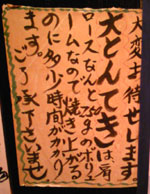 大変お待せします
大とんてきは、肩
ロースなんと250gのボリュ
ームなので焼き上がる
のに多少時間がかかり
ます。
ごりょう承下さいませ